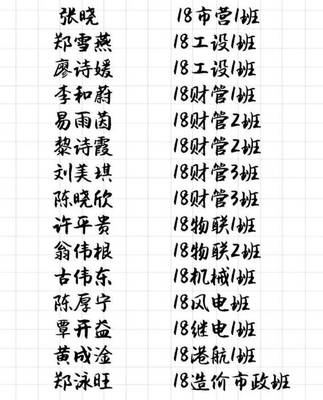 张晓 18市营1班
郑雪燕 18工设1班
廖诗媛 18工设1班
李和蔚 18财管1班
易雨茵 18财管2班
黎诗霞 18财管2班
刘美琪 18财管3班
陈晓欣 18财管3班
许平贵 18物联1班
翁伟根 18物联2班
古伟东 18机械1班
陈厚宁 18风电班
覃开益 18继电1班
黄成淦 18港航1班
郑泳旺 18造价市政班